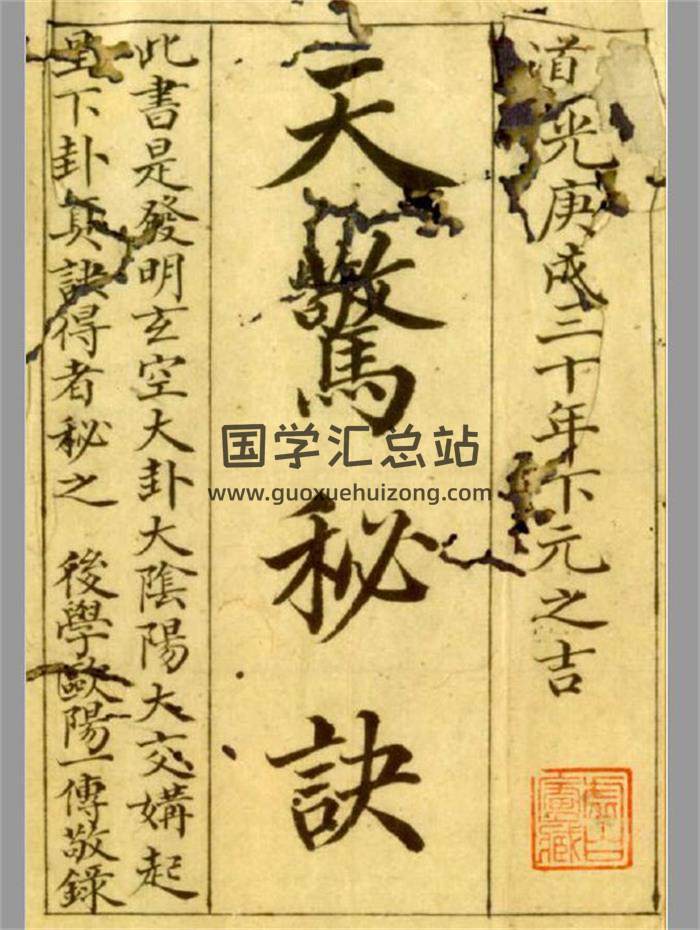 道光庚戌三十年下元之吉
天驚秘訣
此書是發明玄空大卦大陰陽大交媾起
星下卦真訣得者秘之 後學歐陽一傳敬錄
虛白廬藏
国学汇总站
www.guoxuehuizong.com